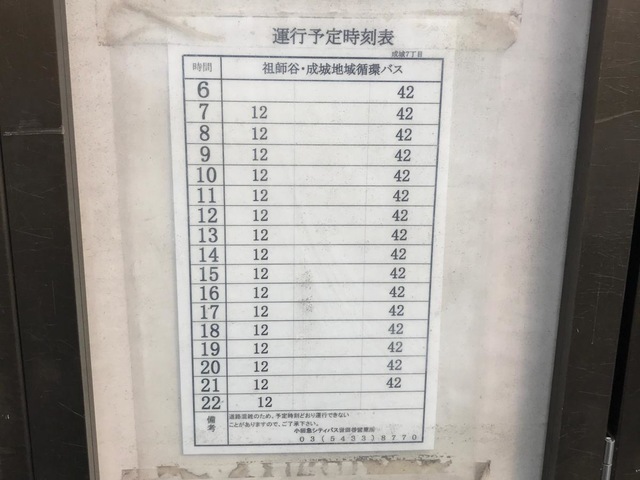 運行予定時刻表
成城7丁目
時間 祖師谷・成城地域循環バス
6 42
7 12 42
8 12 42
9 12 42
10 12 42
11 12 42
12 12 42
13 12 42
14 12 42
15 12 42
16 12 42
17 12 42
18 12 42
19 12 42
20 12 42
21 12 42
22 12
備考
道路混雑のため、予定時刻どおり運行できない
ことがありますので、ご了承下さい。
小田急シティバス世田谷営業所
03(5433)8770